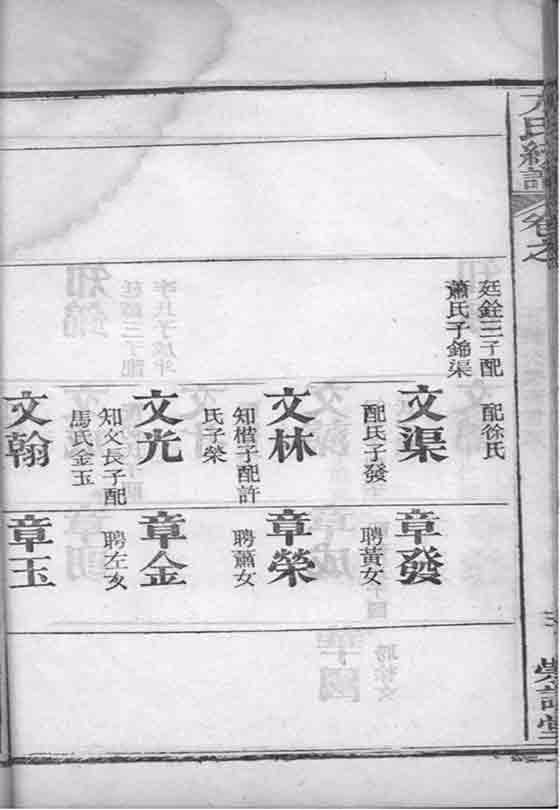 氏統譜
卷之
廷銓三子配
蕭氏子錦渠
配徐氏
文渠
配氏子發
文林
知楷子配許
氏子榮
文光
知文長子配
馬氏金玉
文翰
章發
聘黃女
章榮
聘蕭女
章金
聘左女
章玉